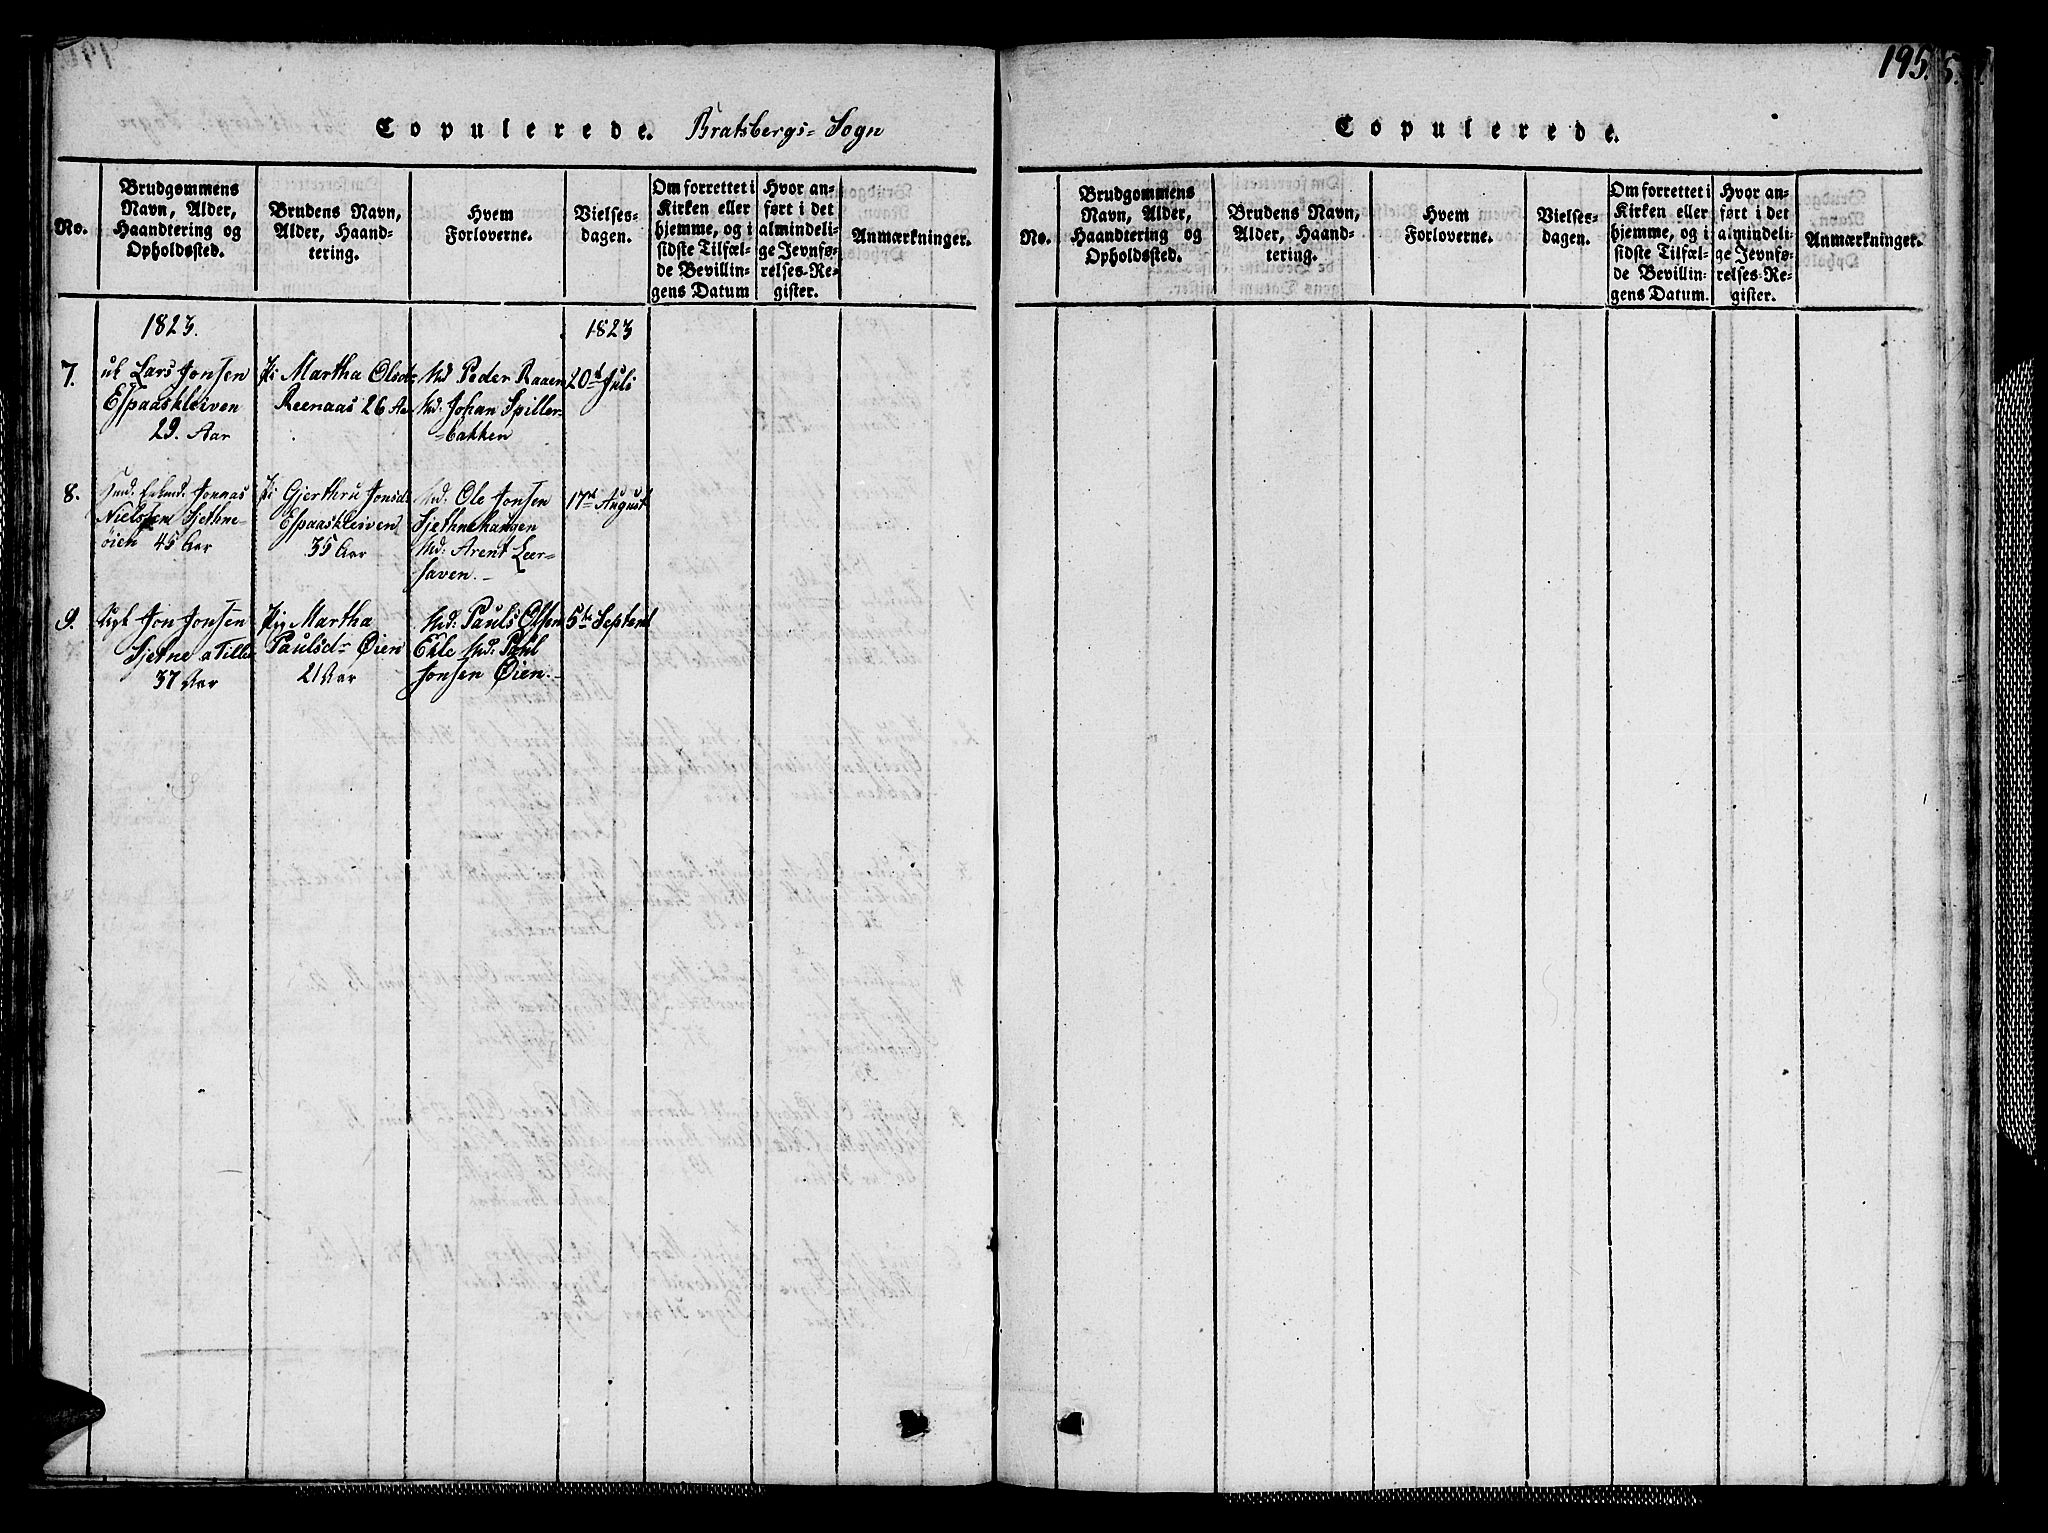 Copulerede. Bratsbergs- Sogn
No.
Brudgommens
Navn, Alder,
Haandtering og
Opholdssted.
Brudens Navn,
Alder, Haand-
tering.
Hvem
Forloverne.
Vielses-
dagen.
Om forrettet i
Kirken eller
hjemme, og i
sidste Tilfæl-
de Bevillin-
gens Datum
Hvor an-
ført i det
almindeli-
ge Jevnfø-
relses-Re-
gister.
Anmærkninger.
1823.
1823
7.
uk Lars Jonsen
Espaaskleiven
29. Aar
Pi Martha Olsd-
Reenaas 26 Aar
Md Peder Raaen
Md: Johan Spiller-
-bakken
20d Juli
8.
Jonnas
Nielssen Sjethne-
øien 45 Aar
Pi Gjerthru Jonsd
Espaaskleiven
35 Aar
Md: Ole Jonsen
Sjethnehaugen
Md: Arent Leer-
haven.-
17d August
9.
Ugk Jon Jonsen
Sjetne a Tiller
37 Aar
Pig Martha
Paulsdr Øien
21 Aar
Md: Pauls Olsen
Ekle Md: Pahl
Jonsen Øien.-
5te Septemb
195.
Copulerede.
No.
Brudgommens
Navn, Alder,
Haandtering og
Opholdssted.
Brudens Navn,
Alder, Haand-
tering.
Hvem
Forloverne.
Vielses-
dagen.
Om forrettet i
Kirken eller
hjemme, og i
sidste Tilfæl-
de Bevillin-
gens Datum.
Hvor an-
ført i det
almindeli-
ge Jevnfø-
relses-Re-
gister.
Anmærkninger.